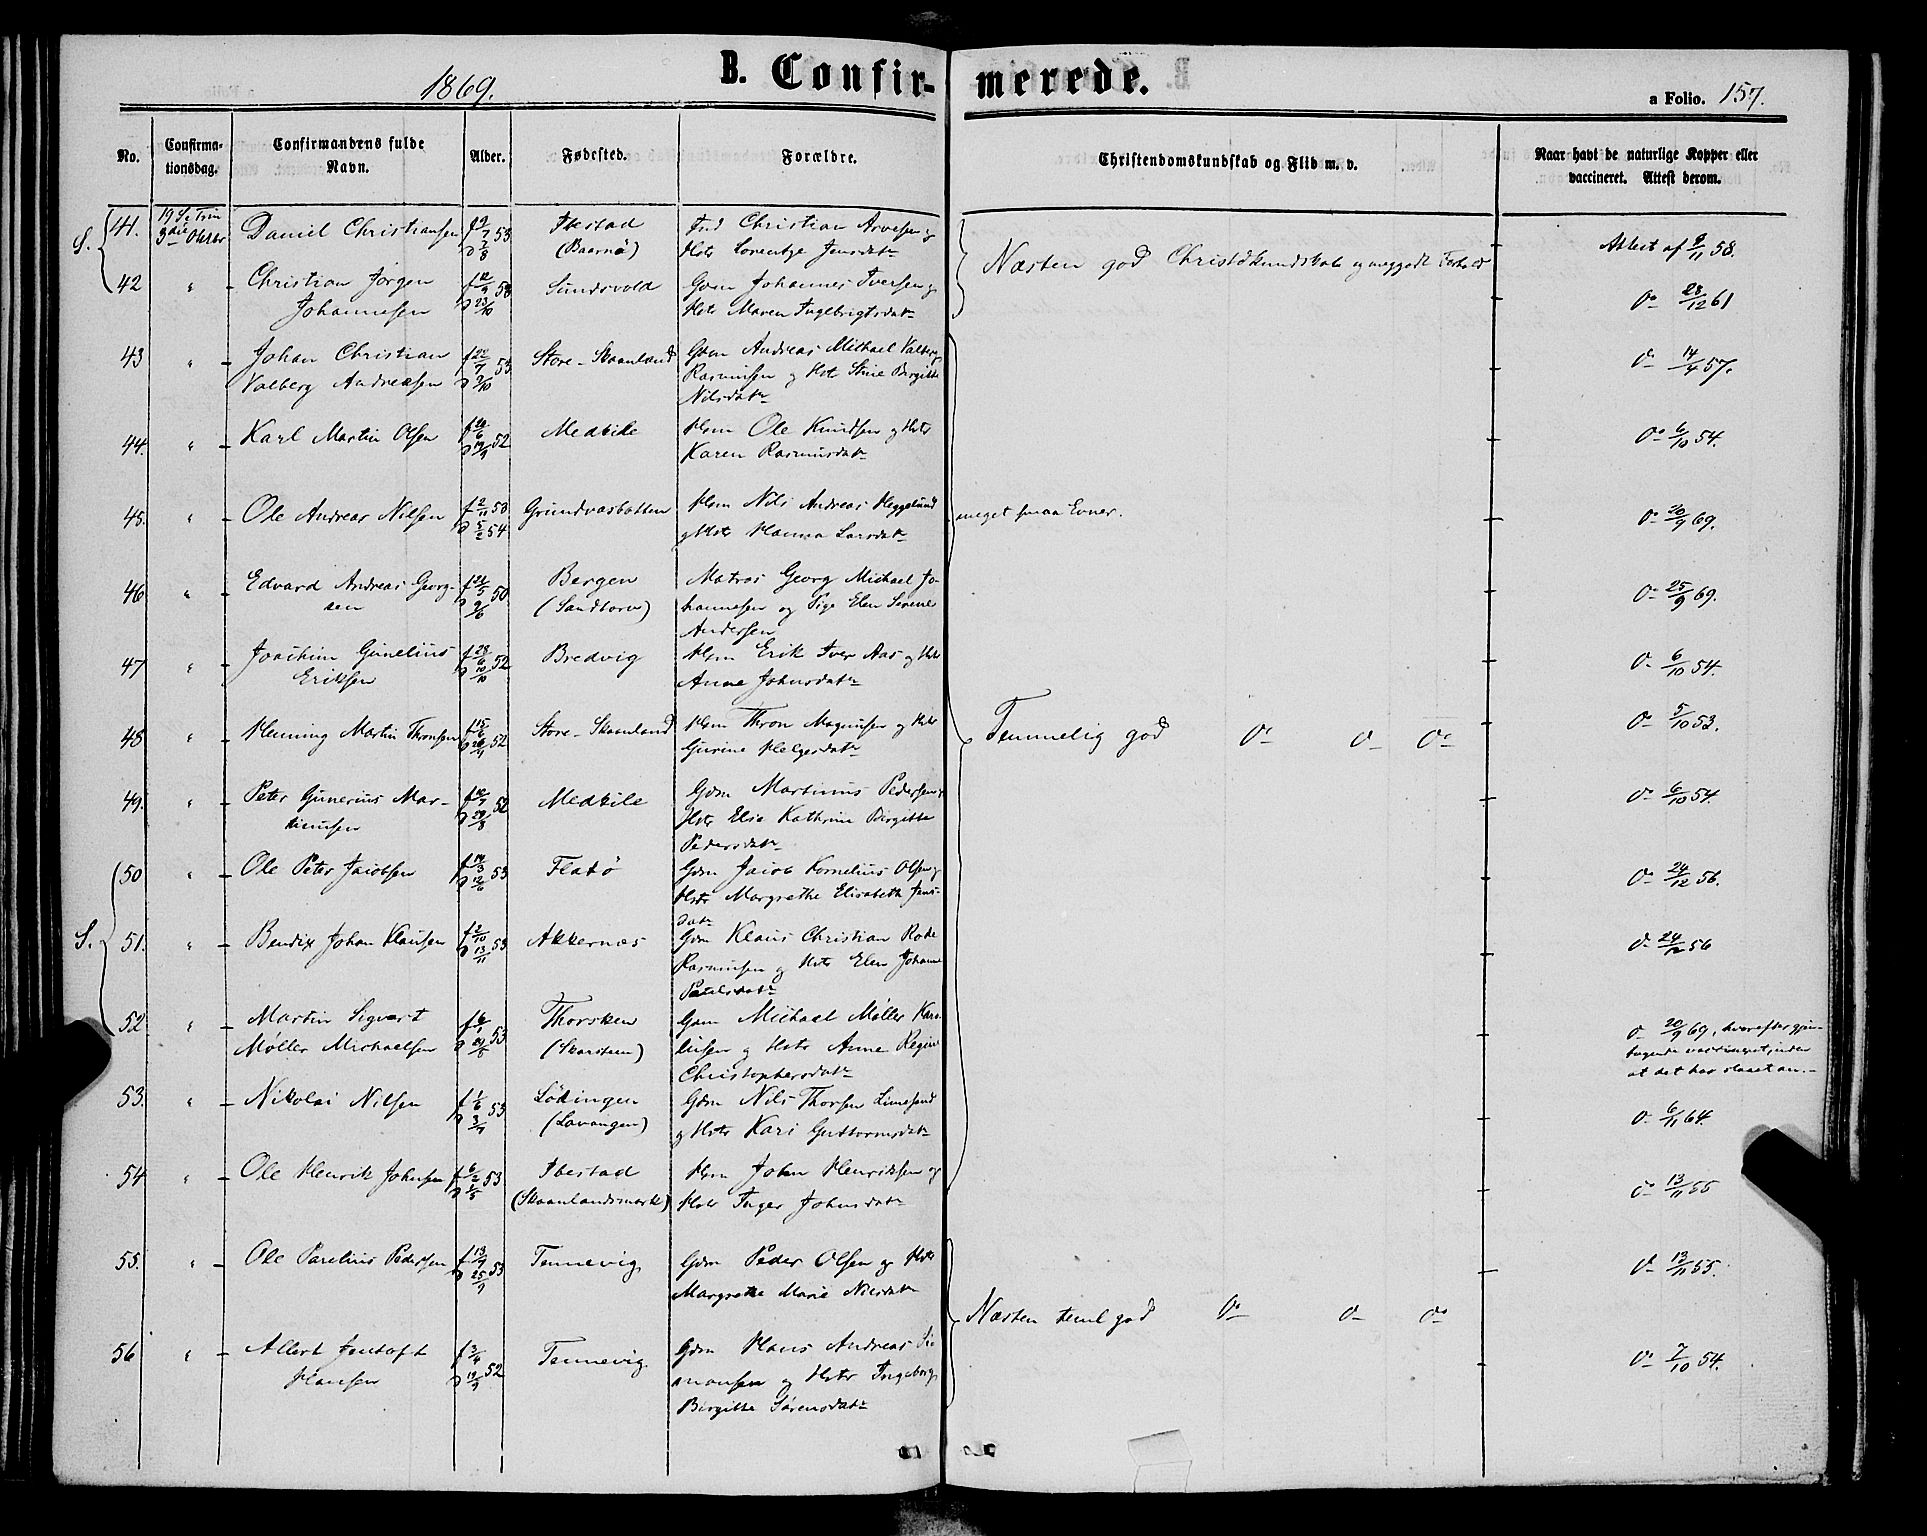 1869.
B. Confir-
merede.
a Folio. 157.
No.
Confirma-
tionsdag.
Confirmandens fulde
Navn.
Alder.
Fødested.
Forældre.
Christendomskundskab og Flid m. v.
Naar havt de naturlige Kopper eller
vaccineret. Attest derom.
S.
41.
19 S. e Trin
3die Oktbr
Daniel Christiansen
53
Ibestad
(Baarnø)
Ind Christian Arvesen og
Hstr Lorentze Jensdatr
Næsten god Christdkundskab og meggodt Forhold
Attest af 9/11 58.
42 " - Christian Jørgen
Johannesen
53
Sundsvold
Gdm Johannes Iversen og
Hstr Maren Ingebrigtsdatr
Do 28/12 61
43 " - Johan Christian
Valberg Andreasen
f 22/7 53
Store-Skaanland
Gdm Andreas Mithael Valberg
Rasmussen og Hstr Stine Birgitte
Nilsdatr
Do 14/4 57.
44. " - Karl Martin Olsen
52
Medkile
Hsm Ole Knudsen og Hstr
Karen Rasmusdatr
Do 6/10 54.
45. " - Ole Andreas Nilsen
f 2/11 53
D 5/2 54
Grundvasbotten
Hsm Nils Andreas Heggelund
og Hstr Hanna Larsdatr
meget smaa Evner.
Do 20/9 69.
46 " - Edvard Andreas Georg-
sen
50
Bergen
(Sandtorv)
Matros Georg Michael Jo-
hannesen og Pige Elen Serene
Andersen
Do 25/9 69.
47 " - Joachim Gunelius
Eriksen
52
Bredvig
Hsm Erik Iver Aas og Hstr
Anne Johnsdatr
Do 6/10 54.
48 " - Henning Martin Thronsen
52
Store-Skaanland
Hsm Thron Magnusen og Hstr
Gurine Helgesdatr
Temmelig god Do Do Do
Do 5/10 53.
49. " - Peter Gunerius Mar-
tinusen
52
Medkile
Gdm Martinus Pedersen og
Hstr Elsa Kathrine Birgitte
Pedersdatr
Do 6/10 54.
S.
50 " - Ole Peter Jacobsen
53
Flatø
Gdm Jacob Kornelius Olsen og
Hstr Margrethe Elisabeth Jens-
datr
Do 24/12 56.
51. " - Bendix Johan Klausen
f 2/10 53
D 13/11
Akkernæs
Gdm Klaus Christian Rode
Rasmussen og Hstr Elen Johanne
Paulsdatr
Do 24/12 56
52 " - Martin Sigvart
Møller Michaelsen
53
Thorsken
(Skarsteen)
Gdm Michael Møller Karo-
liusen og Hstr Anne Regine
Christophersdatr
Do 20/9 69, hvorefter gjen-
tagende vaccineret, uden
at det har slaaet an.-
53. " - Nikolai Nilsen
f 1/6 53
Lödingen
(Lavangen)
Gdm Nils Thorsen Limesand
og Hstr Kari Guttormsdatr
Do 6/11 64.
54 " - Ole Henrik Johnsen
f 6/2 53
Ibestad
(Skaanlandsmark)
Hsm John Henriksen og
Hstr Inger Johnsdatr
Do 13/11 55
55. " - Ole Parelius Pedersen
53
Tennevig
Gdm Peder Olsen og Hstr
Margrethe Marie Nilsdatr
Næsten teml god Do Do Do
Do 13/11 55.
56 " - Albert Jentoft
Hansen
52
Tennevig
Gdm Hans Andreas Si-
monsen og Hstr Ingeborg
Birgitte Sørensdatr
Do 7/10 54.